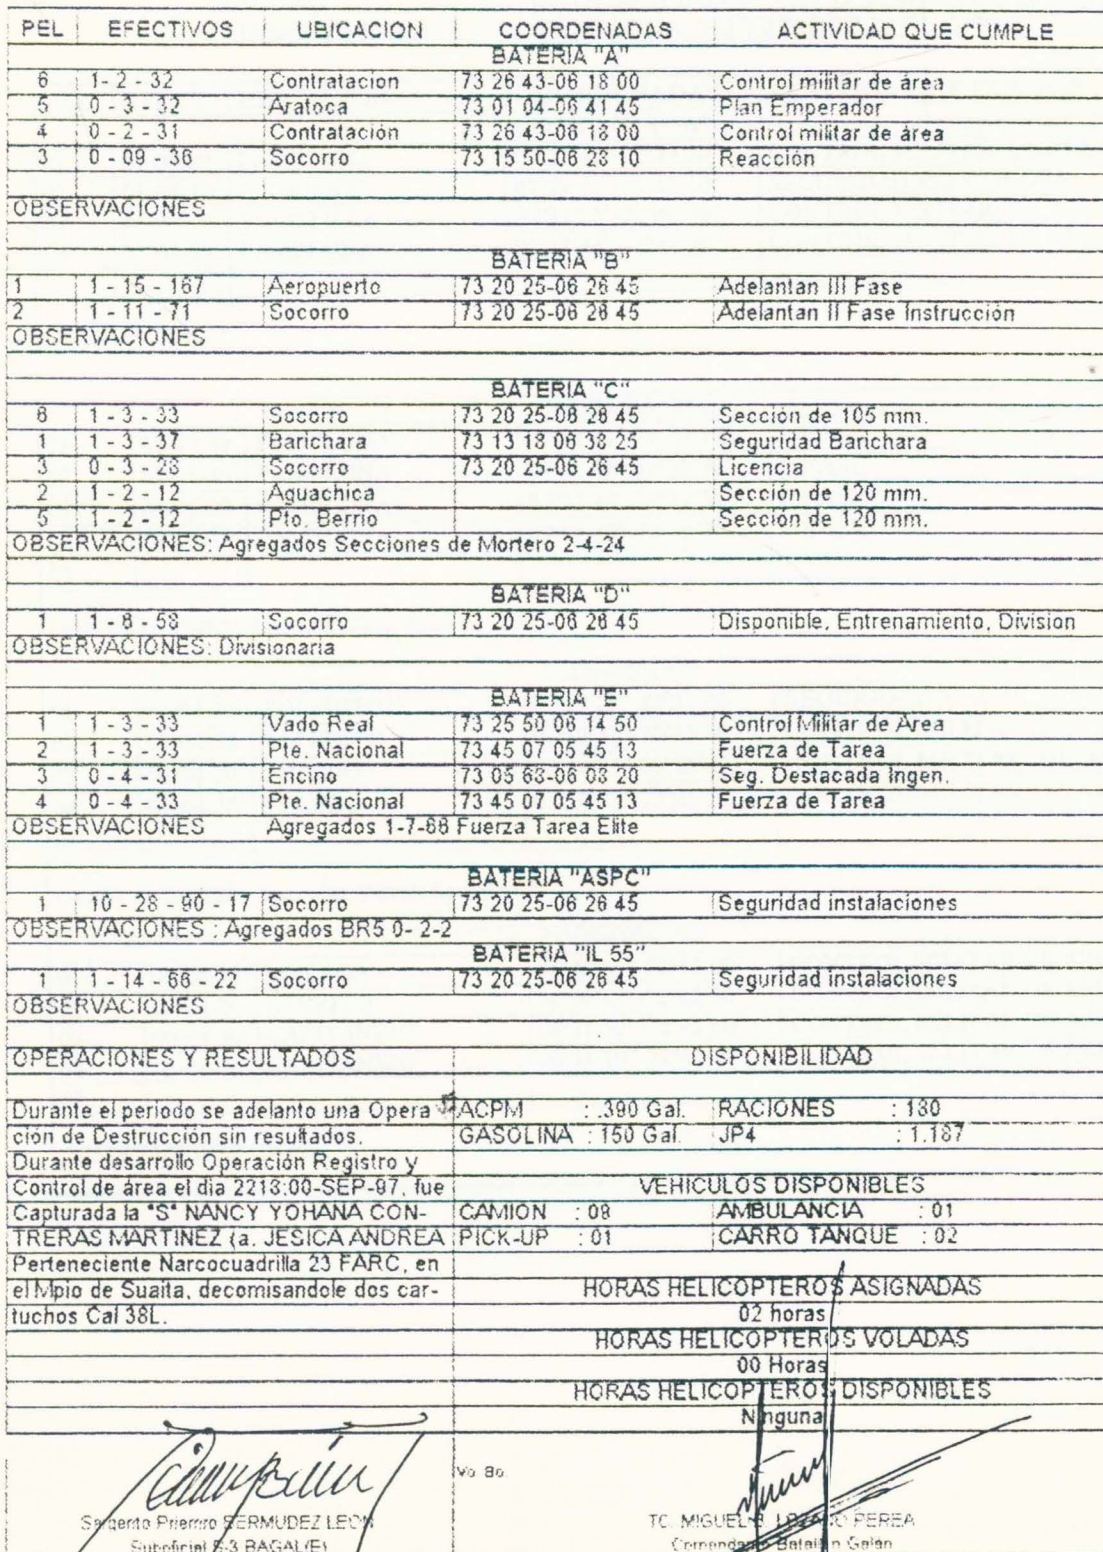 PEL EFECTIVOS UBICACION COORDENADAS ACTIVIDAD QUE CUMPLE
BATERIA "A"
6 1- 2 - 32 Contratacion 73 26 43-06 18 00 Control militar de área
5 0 - 3 - 32 Aratoca 73 01 04-06 41 45 Plan Emperador
4 0 - 2 - 31 Contratación 73 26 43-06 18 00 Control militar de área
3 0 - 09 - 36 Socorro 73 15 50-06 28 10 Reacción
OBSERVACIONES
BATERIA "B"
1 1 - 15 - 167 Aeropuerto 73 20 25-06 26 45 Adelantan III Fase
2 1 - 11 - 71 Socorro 73 20 25-06 26 45 Adelantan II Fase Instrucción
OBSERVACIONES
BATERIA "C"
6 1 - 3 - 33 Socorro 73 20 25-06 26 45 Sección de 105 mm.
1 1 - 3 - 37 Barichara 73 13 18 06 38 25 Seguridad Barichara
3 0 - 3 - 28 Socorro 73 20 25-06 26 45 Licencia
2 1 - 2 - 12 Aguachica Sección de 120 mm.
5 1 - 2 - 12 Pto. Berrio Sección de 120 mm.
OBSERVACIONES: Agregados Secciones de Mortero 2-4-24
BATERIA "D"
1 1 - 8 - 58 Socorro 73 20 25-06 26 45 Disponible, Entrenamiento, Division
OBSERVACIONES: Divisionaria
BATERIA "E"
1 1 - 3 - 33 Vado Real 73 25 50 06 14 50 Control Militar de Area
2 1 - 3 - 33 Pte. Nacional 73 45 07 05 45 13 Fuerza de Tarea
3 0 - 4 - 31 Encino 73 05 68-06 08 20 Seg. Destacada Ingen.
4 0 - 4 - 33 Pte. Nacional 73 45 07 05 45 13 Fuerza de Tarea
OBSERVACIONES Agregados 1-7-66 Fuerza Tarea Elite
BATERIA "ASPC"
1 10 - 28 - 90 - 17 Socorro 73 20 25-06 26 45 Seguridad instalaciones
OBSERVACIONES : Agregados BR5 0- 2-2
BATERIA "IL 55"
1 1 - 14 - 66 - 22 Socorro 73 20 25-06 26 45 Seguridad instalaciones
OBSERVACIONES
OPERACIONES Y RESULTADOS DISPONIBILIDAD
Durante el periodo se adelanto una Opera ACPM : .390 Gal. RACIONES : 130
ción de Destrucción sin resultados. GASOLINA : 150 Gal. JP4 : 1.187
Durante desarrollo Operación Registro y
Control de área el dia 2218:00-SEP-97, fue VEHICULOS DISPONIBLES
Capturada la "S" NANCY YOHANA CON- CAMION : 08 AMBULANCIA : 01
TRERAS MARTINEZ (a. JESICA ANDREA PICK-UP : 01 CARRO TANQUE : 02
Perteneciente Narcocuadrilla 23 FARC, en
el Mpio de Suaita, decomisandole dos car- HORAS HELICOPTEROS ASIGNADAS
tuchos Cal 38L. 02 horas
HORAS HELICOPTEROS VOLADAS
00 Horas
HORAS HELICOPTEROS DISPONIBLES
Ninguna
Vo. Bo.
Sargento Priemro BERMUDEZ LEON TC. MIGUEL LOZANO PEREA
Suboficial S-3 BAGAL(E) Comandante Batallón Galán